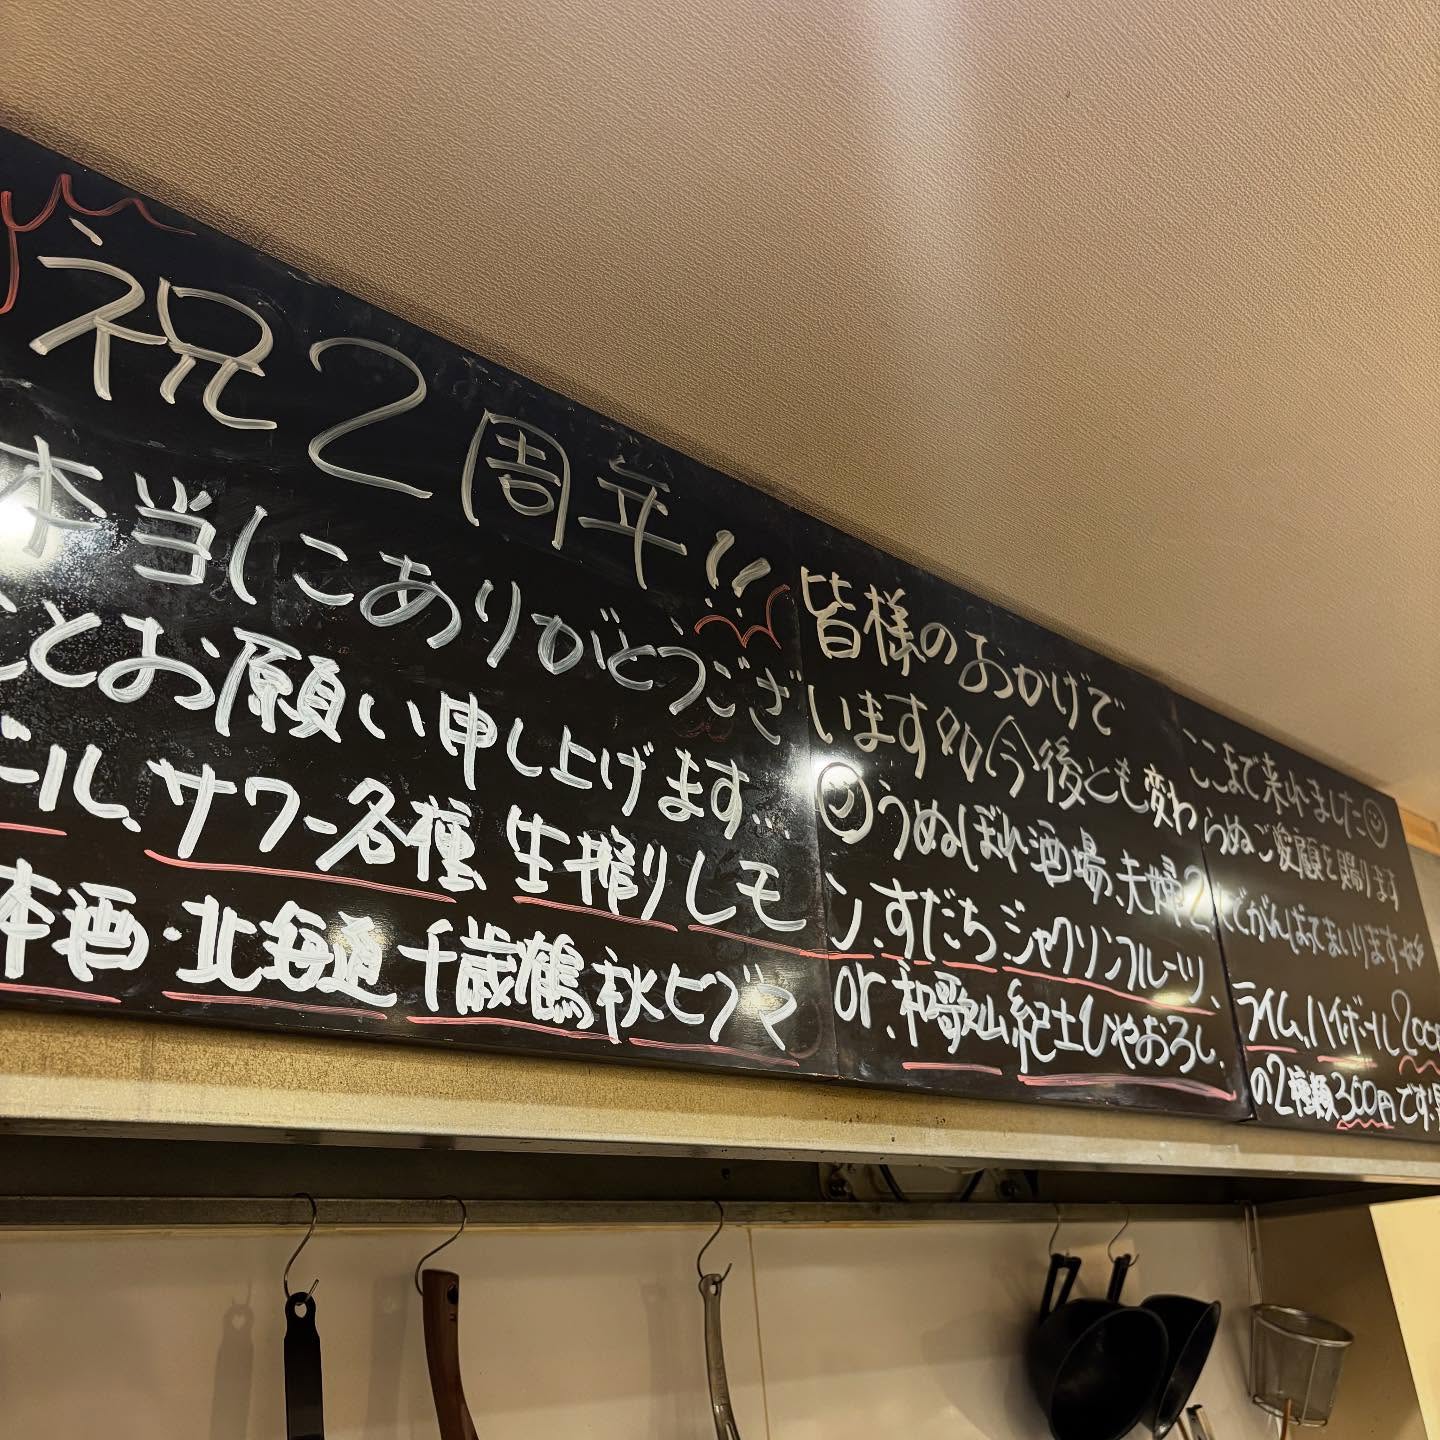 祝2周年!! 皆様のおかげで ここまで来れました
本当にありがとうございます 今後とも変わらぬご愛顧を賜ります
ことお願い申し上げます… うぬぼれ酒場、夫婦2人でがんばってまいります
ール、サワー各種、生搾りレモン、すだち、ジャクソンフルーツ、ライム、ハイボール200
本酒・北海道 千歳鶴 秋ピブマ or、和歌山 紀土ひやおろし、の2種類300円です!